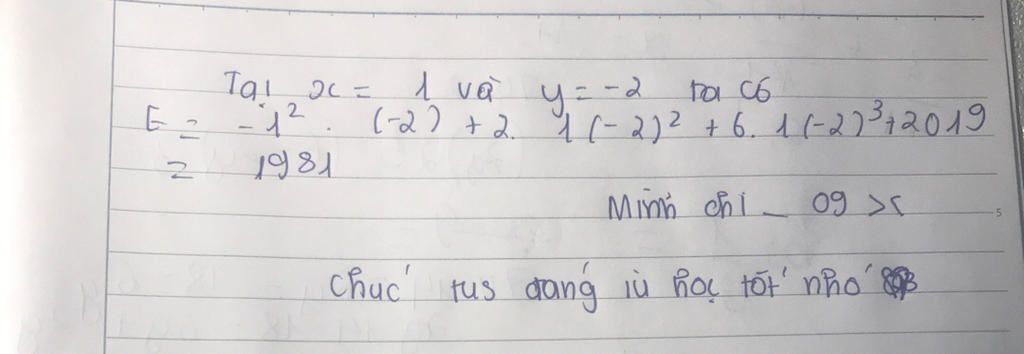 Tại x = 1 và y = -2 ta có
E = -1² . (-2) + 2. 1(-2)² + 6. 1(-2)³ + 2019
= 1981
Minh chi _ 09 ><
chúc tus đáng iu học tốt nhó
5